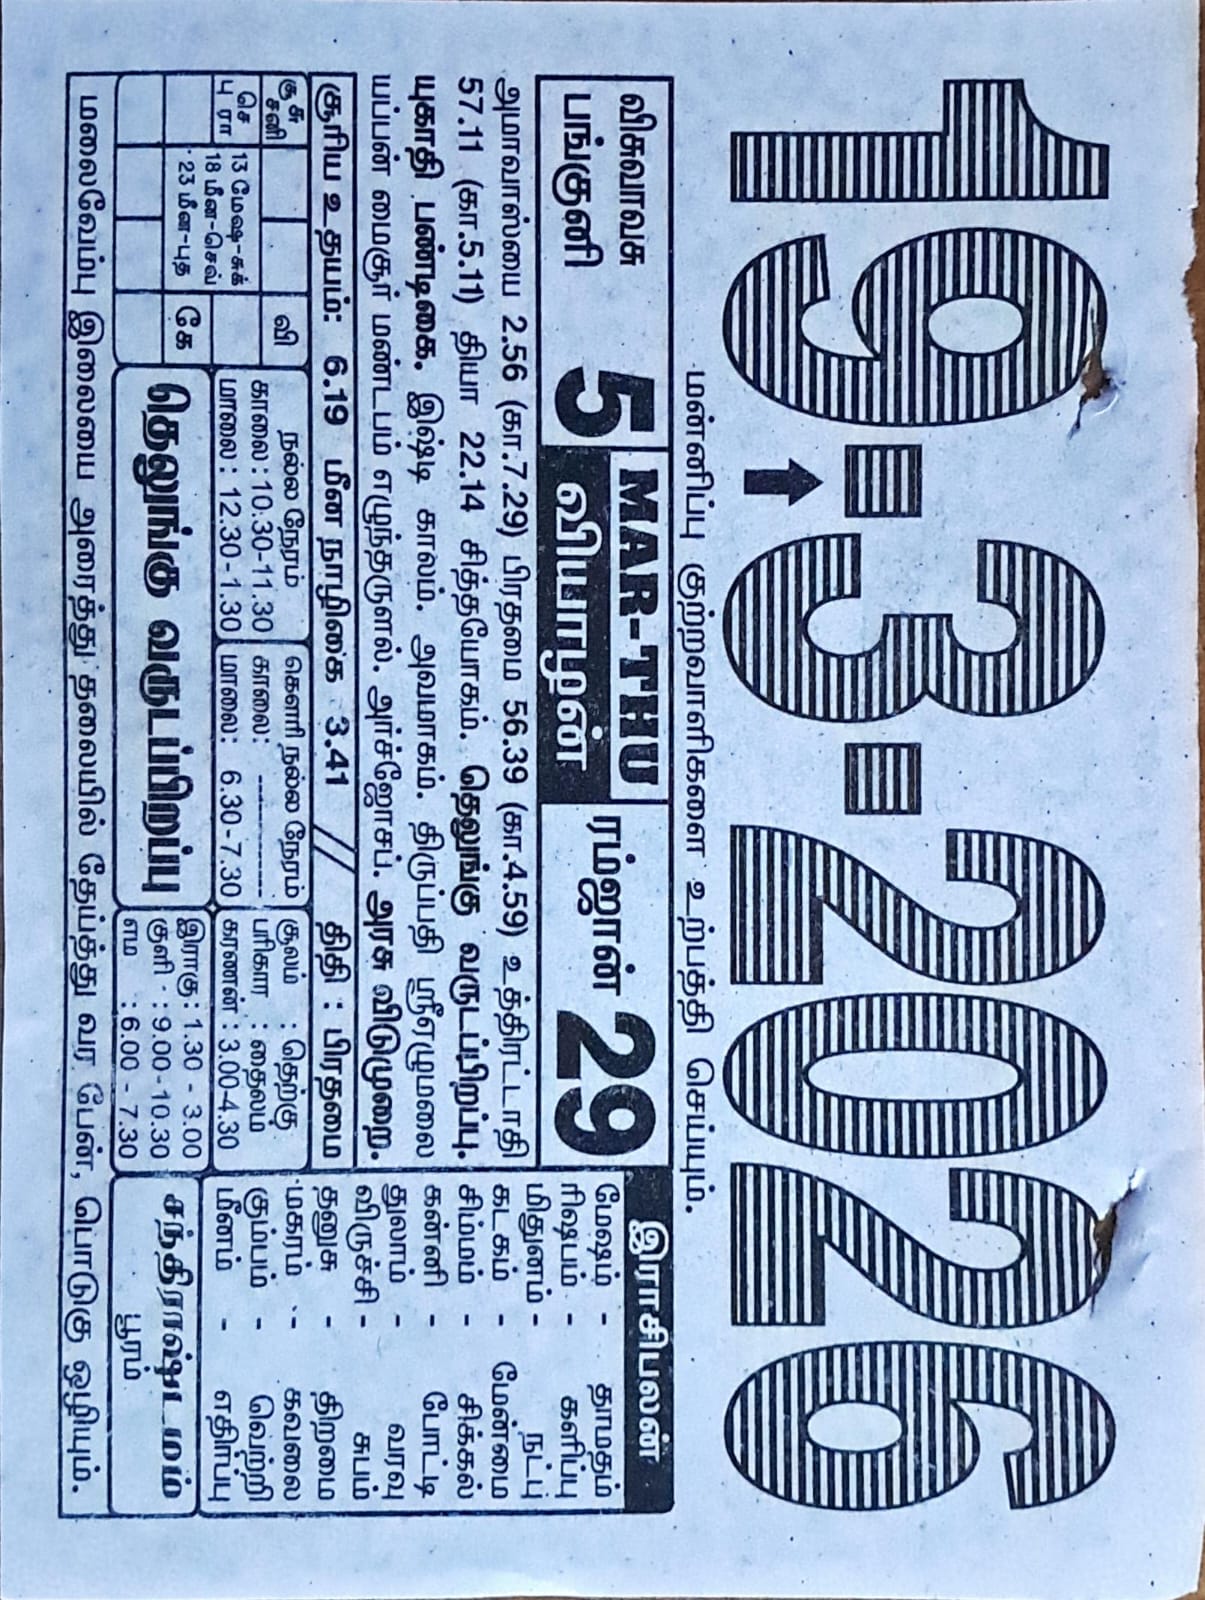 19-3-2026
மன்னிப்பு குற்றவாளிகளை உற்பத்தி செய்யும்.
விசுவாவசு
பங்குனி 5
MAR-THU
வியாழன்
ரம்ஜான் 29
அமாவாஸ்யை 2.56 (கா.7.29) பிரதமை 56.39 (கா.4.59) உத்திரட்டாதி
57.11 (கா.5.11) தியா 22.14 சித்தயோகம். தெலுங்கு வருடப்பிறப்பு.
யுகாதி பண்டிகை. இஷ்டி காலம். அவமாகம். திருப்பதி ஸ்ரீஏழுமலை
யப்பன் மைசூர் மண்டபம் எழுந்தருளல். அர்ச்ஜோசப். அரசு விடுமுறை.
சூரிய உதயம்: 6.19 மீன நாழிகை 3.41 // திதி : பிரதமை
கு சு
சனி
வி
செ
பு ரா
13 மேஷ-சுக்
18 மீன-செவ்
23 மீன-புத
கே
நல்ல நேரம்
காலை : 10.30-11.30
மாலை : 12.30-1.30
கௌரி நல்ல நேரம்
காலை: ----------
மாலை: 6.30-7.30
சூலம் : தெற்கு
பரிகார : தைலம்
கரணன் : 3.00-4.30
தெலுங்கு வருடப்பிறப்பு
இராகு : 1.30 - 3.00
குளி : 9.00-10.30
எம : 6.00 - 7.30
இராசிபலன்
மேஷம் - தாமதம்
ரிஷபம் - களிப்பு
மிதுனம் - நட்பு
கடகம் - மேன்மை
சிம்மம் - சிக்கல்
கன்னி - போட்டி
துலாம் - வரவு
விருச்சி - சுபம்
தனுசு - திறமை
மகரம் - கவலை
கும்பம் - வெற்றி
மீனம் - எதிர்பு
சந்திராஷ்டமம்
பூரம்
மலைவேம்பு இலையை அரைத்து தலையில் தேய்த்து வர பேன், பொடுகு ஒழியும்.